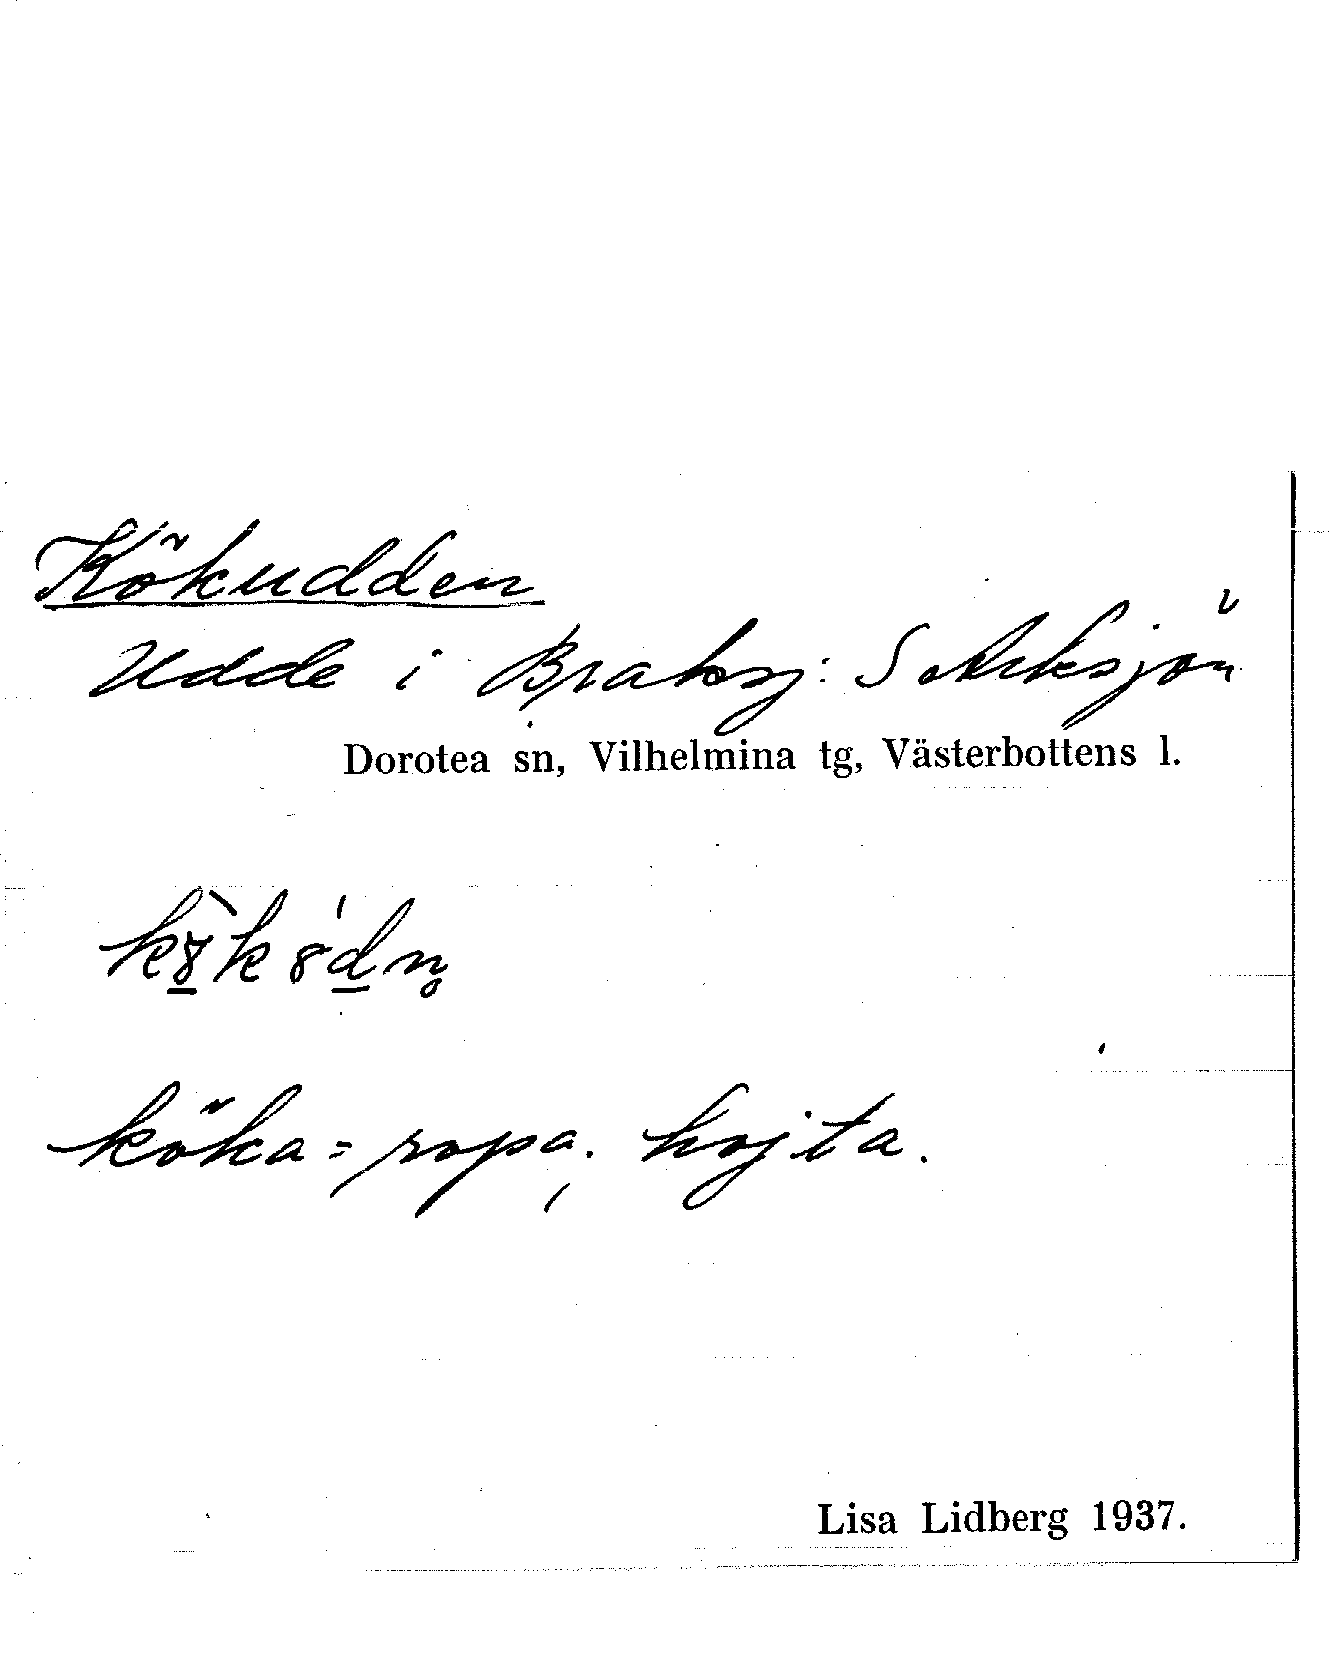 Kökudden
Udde i Braksj: S Arksjön
Dorotea sn, Vilhelmina tg, Västerbottens l.
köka = ropa, hojta.
Lisa Lidberg 1937.